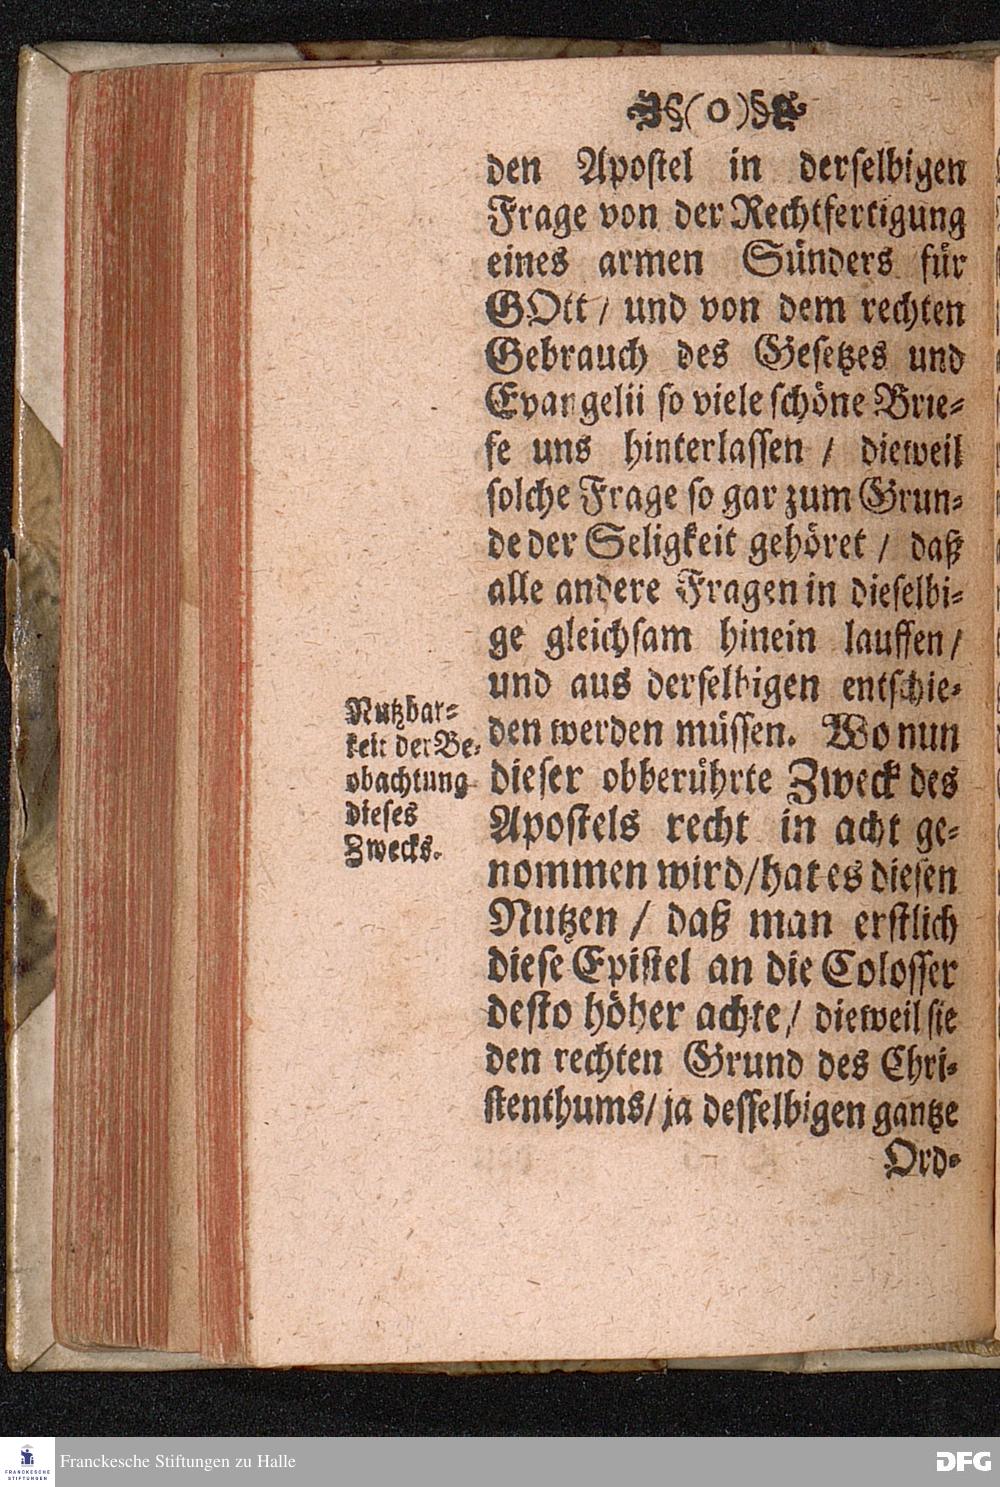 §( o )§
den Apostel in derselbigen
Frage von der Rechtfertigung
eines armen Sünders für
GOtt / und von dem rechten
Gebrauch des Gesetzes und
Evangelii so viele schöne Brie-
fe uns hinterlassen / dieweil
solche Frage so gar zum Grun-
de der Seligkeit gehöret / daß
alle andere Fragen in dieselbi-
ge gleichsam hinein lauffen /
und aus derselbigen entschie-
den werden müssen. Wo nun
dieser obberührte Zweck des
Apostels recht in acht ge-
nommen wird / hat es diesen
Nutzen / daß man erstlich
diese Epistel an die Colosser
desto höher achte / dieweil sie
den rechten Grund des Chri-
stenthums / ja desselbigen gantze
Ord-
Nutzbar-
keit der Be-
obachtung
dieses
Zwecks.
FRANCKESCHE
STIFTUNGEN
Franckesche Stiftungen zu Halle
DFG